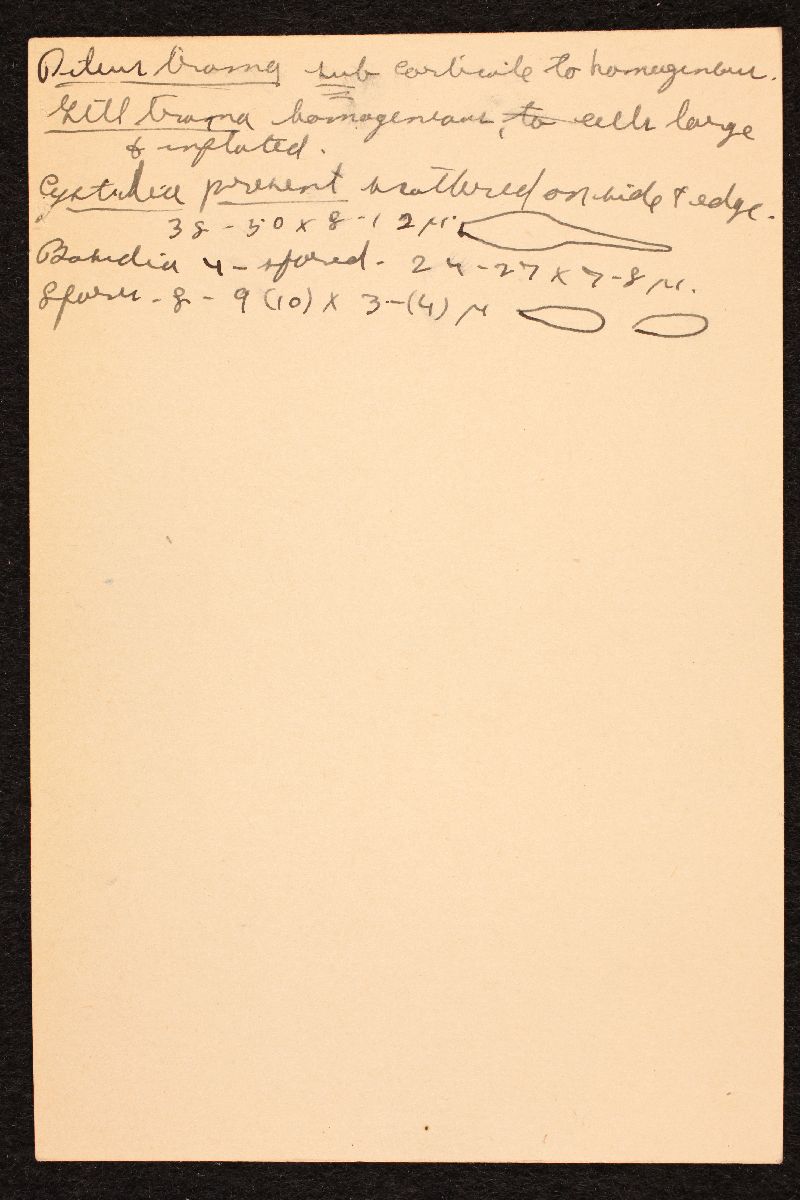 Pileus trama sub corticate to homogenous.
Gill trama homogenious, to cells large
& inflated.
Cystidia present scattered on side & edge.
38-50 x 8-12 µ.
Basidia 4-spored. 24-27 x 7-8 µ.
Spores - 8-9 (10) x 3-(4) µ